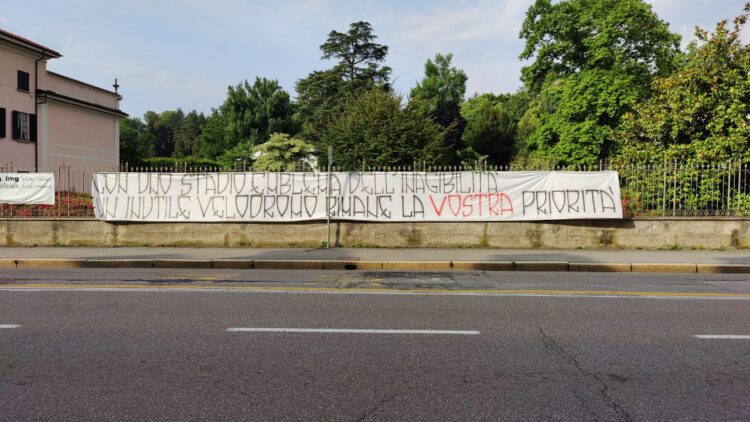 CON UNO STADIO EMBLEMA DELL'INAGIBILITÀ
UN INUTILE VELODROMO RIMANE LA VOSTRA PRIORITÀ
img